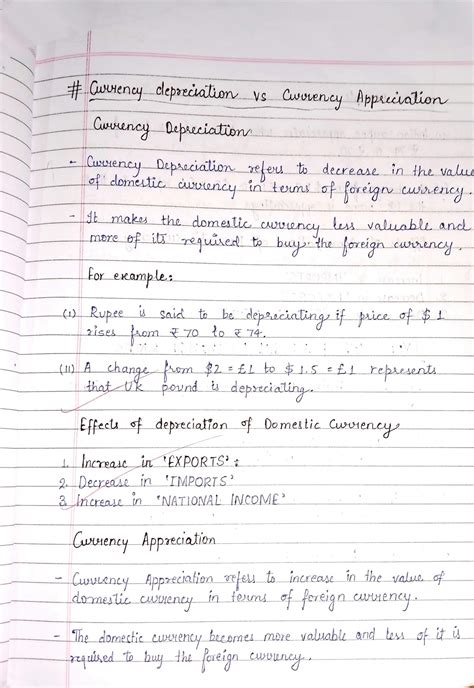 # Currency depreciation vs Currency Appreciation
Currency Depreciation
- Currency Depreciation refers to decrease in the value
of domestic currency in terms of foreign currency.
- It makes the domestic currency less valuable and
more of its required to buy the foreign currency.
For example:
(i) Rupee is said to be depreciating if price of $1
rises from ₹70 to ₹74.
(II) A change from $2 = £1 to $1.5 = £1 represents
that UK pound is depreciating.
Effects of depreciation of Domestic Currency
1. Increase in 'EXPORTS':
2. Decrease in 'IMPORTS'
3. Increase in 'NATIONAL INCOME'
Currency Appreciation
- Currency Appreciation refers to increase in the value of
domestic currency in terms of foreign currency.
- The domestic currency becomes more valuable and less of it is
required to buy the foreign currency.